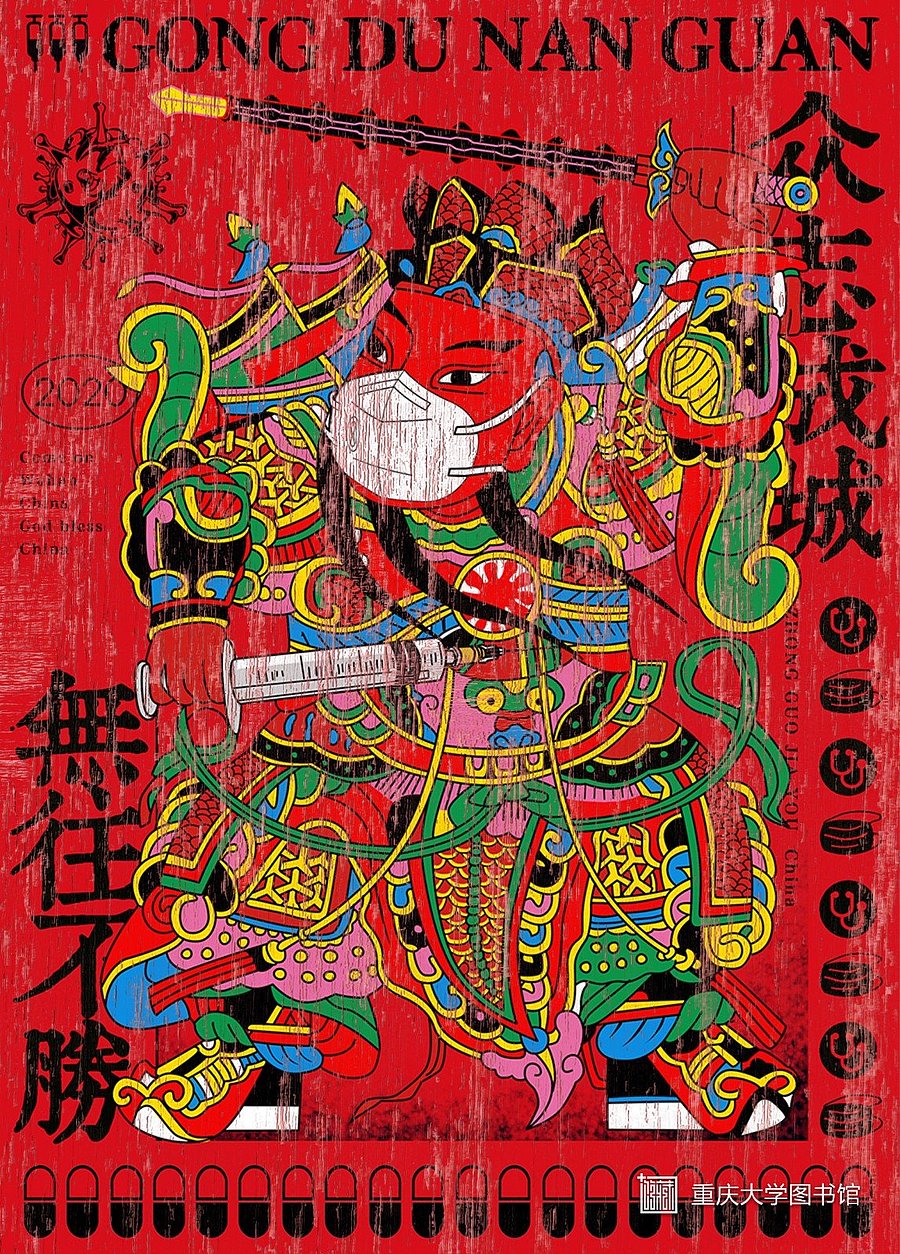 GONG DU NAN GUAN
众志成城
2020
Come on
Wuhan
China
God bless
China
ZHONG GUO JIA YOU China
無往不勝
重庆大学图书馆